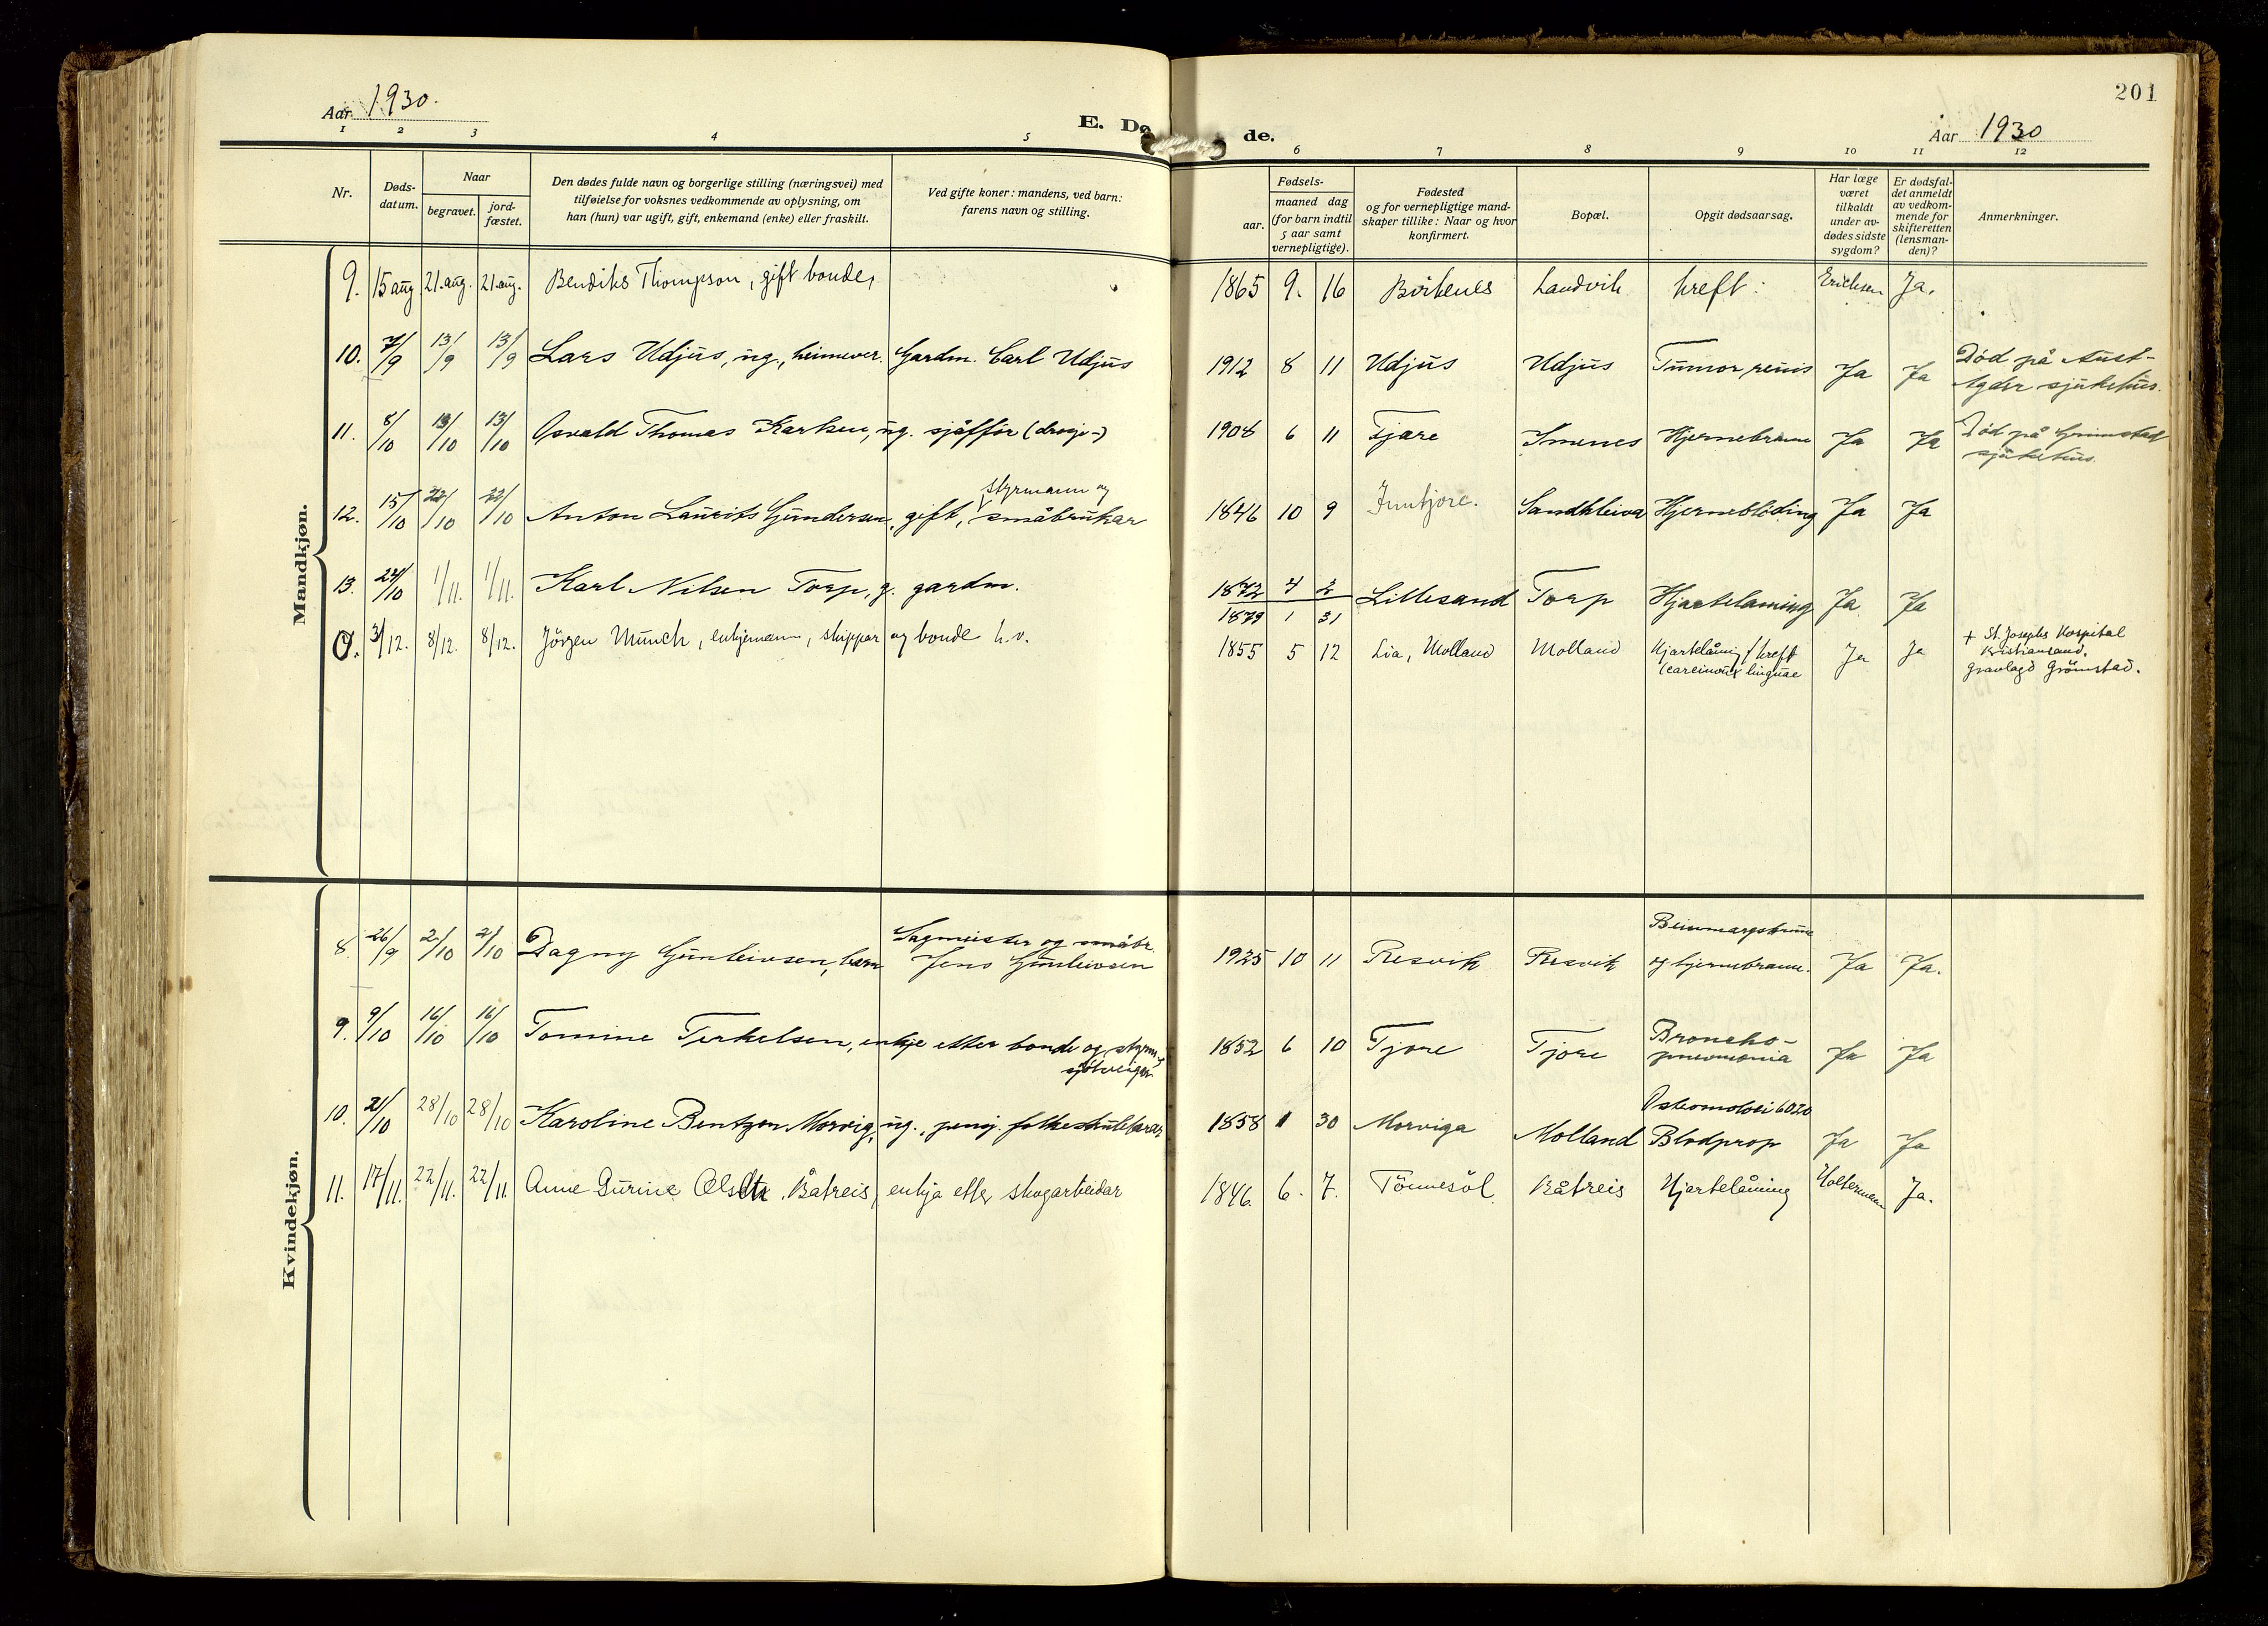 Aar 1930.
E. Dø de.
Aar 1930
201
1 2 3 4 5 6 7 8 9 10 11 12
Nr.
Døds-
datum.
Naar
begravet.
jord-
fæstet.
Den dødes fulde navn og borgerlige stilling (næringsvei) med
tilføielse for voksnes vedkommende av oplysning, om
han (hun) var ugift, gift, enkemand (enke) eller fraskilt.
Ved gifte koner: mandens, ved barn:
farens navn og stilling.
Fødsels-
aar.
maaned dag
(for barn indtil
5 aar samt
vernepligtige).
Fødested
og for vernepligtige mand-
skaper tillike: Naar og hvor
konfirmert.
Bopæl.
Opgit dødsaarsag.
Har læge
været
tilkaldt
under av-
dødes sidste
sygdom?
Er dødsfal-
det anmeldt
av vedkom-
mende for
skifteretten
(lensman-
den)?
Anmerkninger.
Mandkjøn.
9. 15 aug 21. aug. 21. aug. Bendiks Thompson, gift bonde, 1865 9. 16 Birkenes Landvik kreft: Erichsen Ja.
10. 7/9 13/9 13/9 Lars Udjus, ug., heimever. Gardm. Carl Udjus 1912 8 11 Udjus Udjus Tumor renis Ja Ja Død på Aust-
Agder sjukehus.
11. 8/10 13/10 13/10 Osvald Thomas Karlsen, ug. sjåffør (drosje-) 1908 6 11 Fjære Smenes Hjernebetennelse Ja Ja Død på Grimstad
sjukehus.
styrmann og
12. 15/10 22/10 22/10 Anton Laurits Gundersen, gift, småbrukar 1846 10 9 Inntjore. Sandkleiva Hjerneblöding Ja Ja
13. 24/10 1/11. 1/11. Karl Nilsen Torp, g. gardm. 1872 4 2 Lillesand Torp Hjartelaming Ja Ja
1879 1 31
3/12. 8/12. 8/12. Jörgen Munch, enkjemann, skippar og bonde h.v. 1855 5 12 Lia, Molland Molland Hjartelåming / kreft Ja Ja + St. Josephs Hospital
linguae Kristiansand.
gravlagd Grömstad.
Kvindekjøn.
Sagmeister og småbr.
8. 26/9 2/10 2/10 Dagny Gunleivsen, barn Jens Gunleivsen 1925 10 11 Resvik Resvik og Ja Ja.
9. 9/10 16/10 16/10 Tomine Terkelsen, enkje etter bonde og 1852 6 10 Tjore Tjore Broncho-
pneumonia Ja Ja
10. 21/10 28/10 28/10 Karoline Bentzen Morvig, ug., pensj. folkeskulelærar 1858 1 30 Morviga Molland Blodprop Ja Ja
11. 17/11. 22/11. 22/11 Anne Gurine Olsdtr. Båtreis, enkja etter skogarbeidar 1846. 6. 7. Tönnesöl Båtreis Hjartelåming Holtermann Ja.